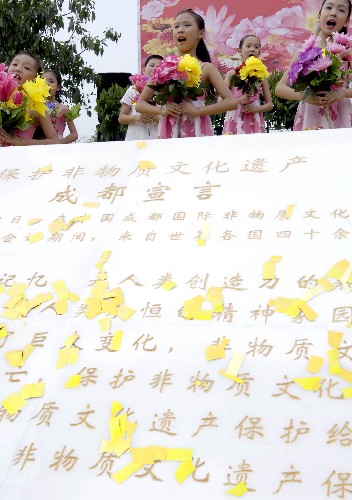 保护非物质文化遗产
成都宣言
国成都国际非物质文化
会 期间，来自世 各国四十余
记忆 人类创造力的
人类 恒 的精神家园
巨 变化，非物质文
亡 保护非物质文化
物质文化遗产保护给
非物质文化遗产保